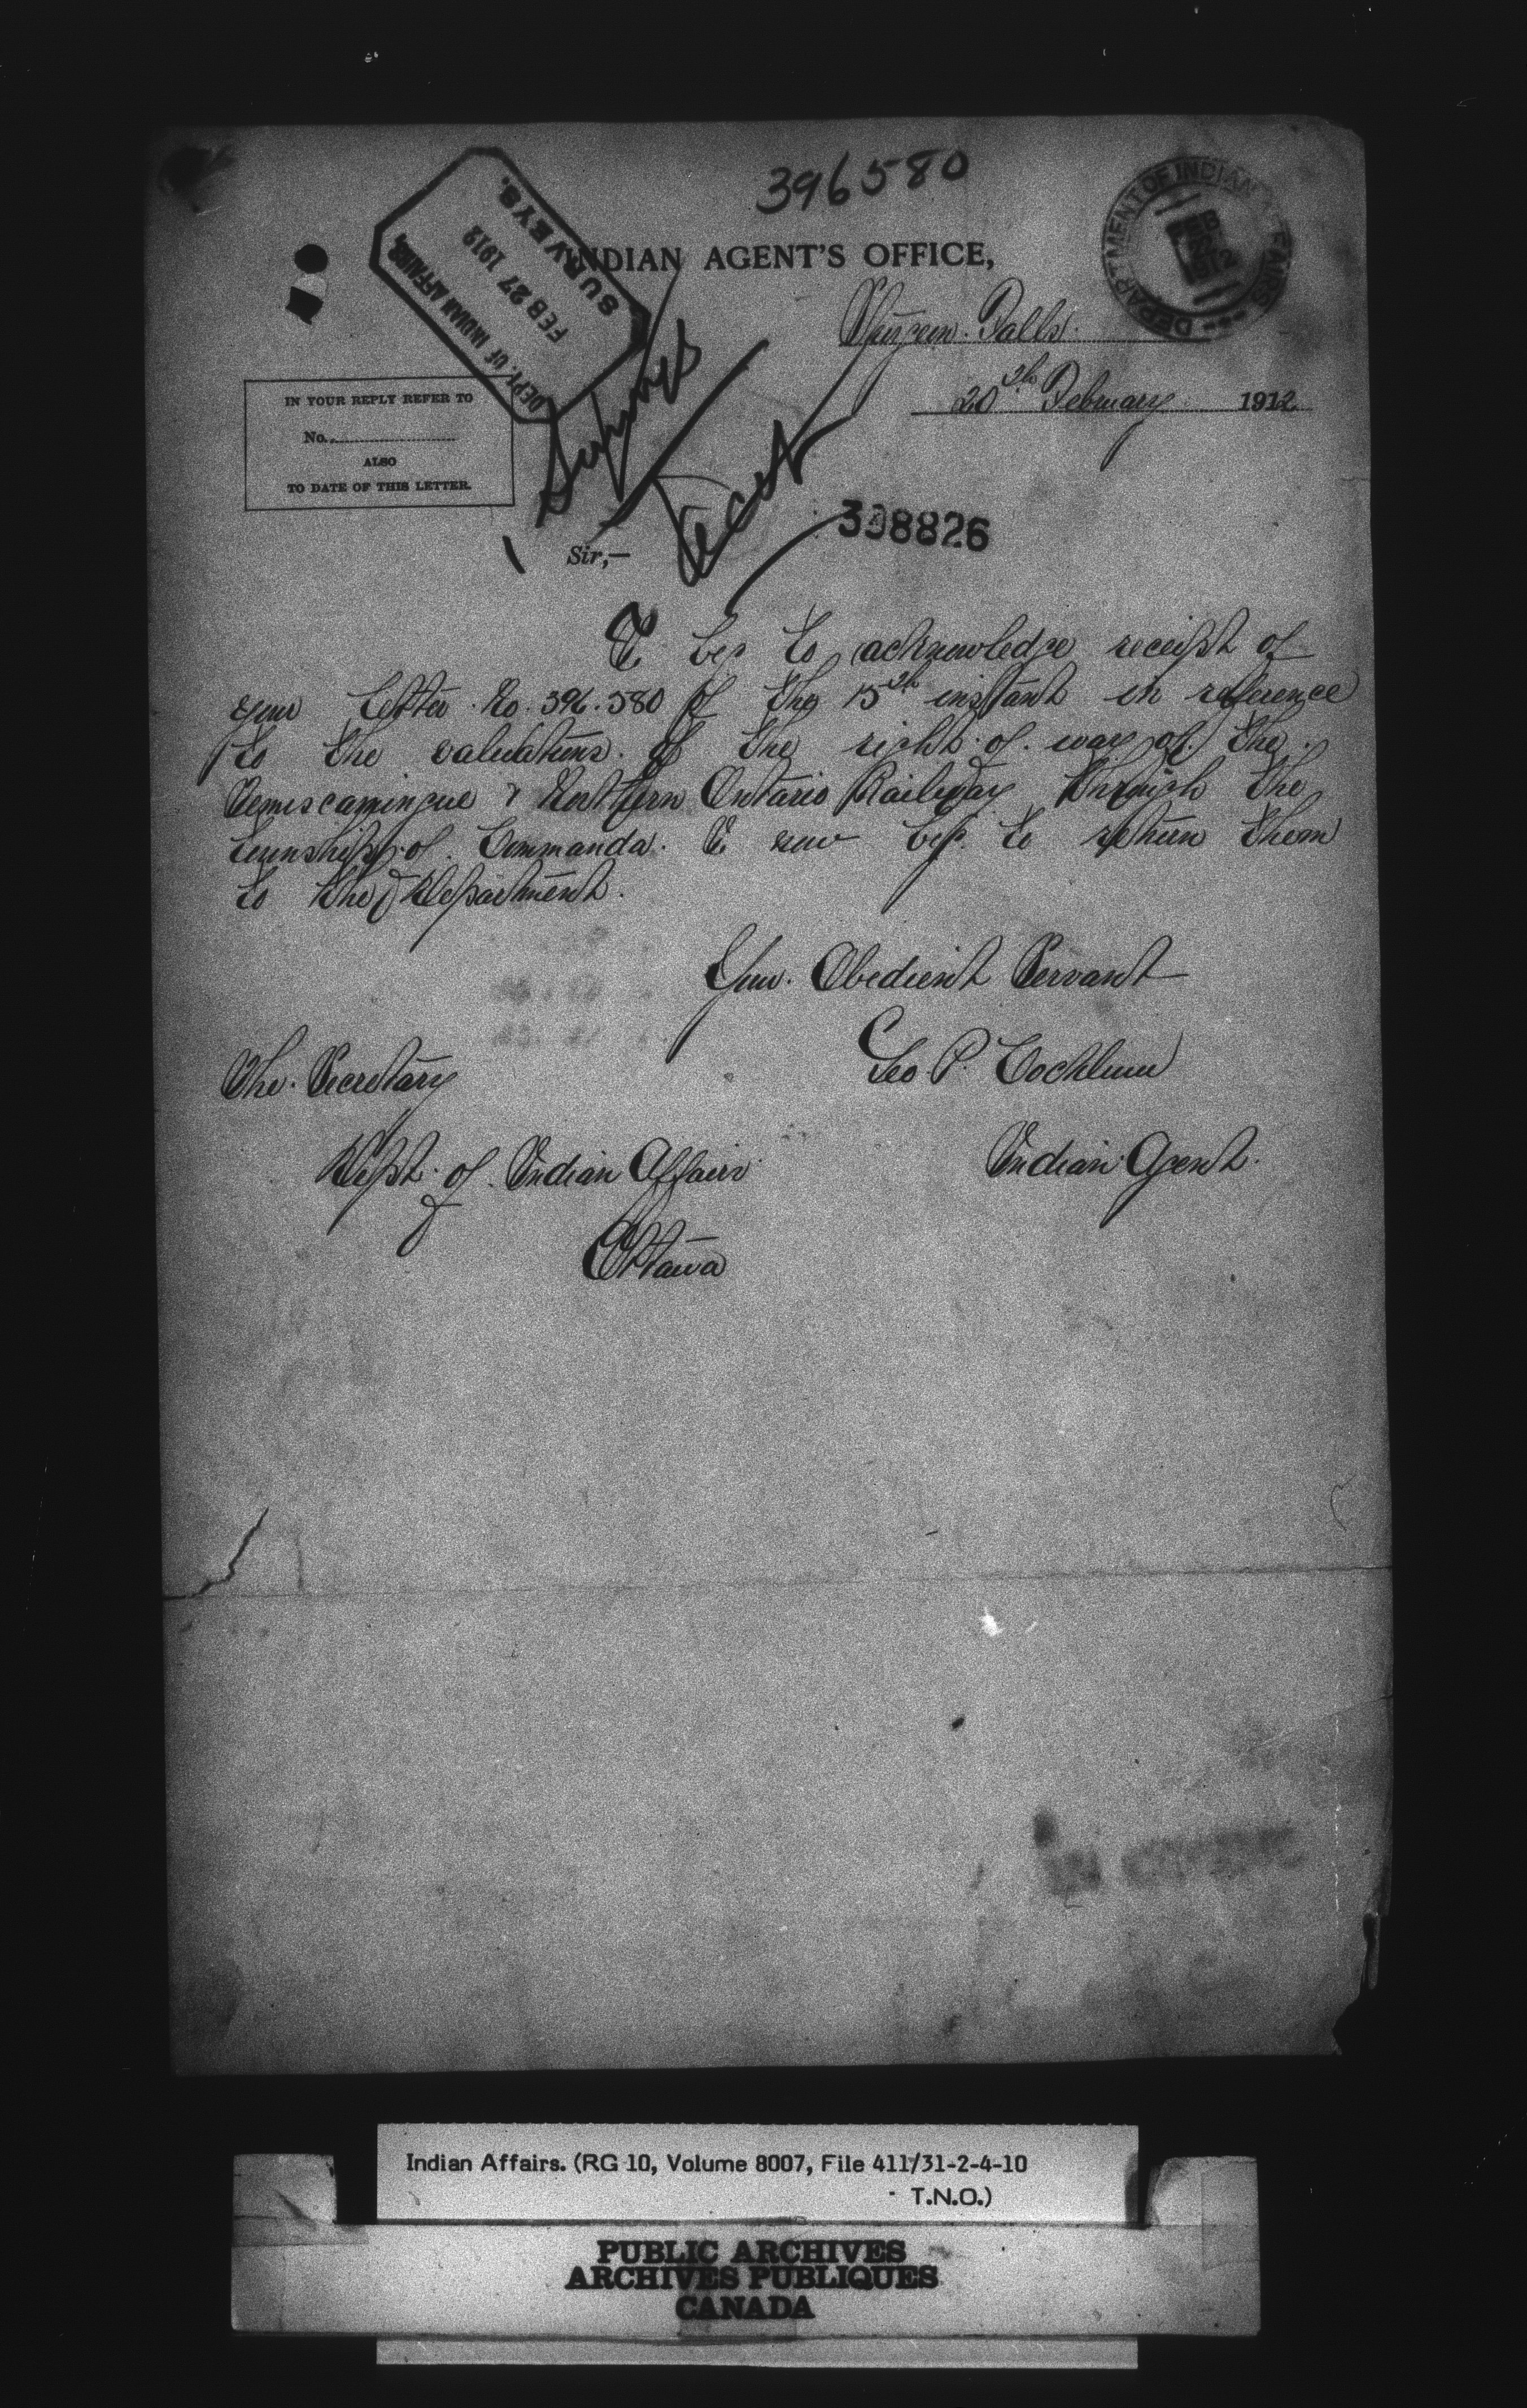 396580
DEPARTMENT OF INDIAN AFFAIRS
1912
DEPT. OF INDIAN AFFAIRS,
FEB 27 1912
SURVEYS.
INDIAN AGENT'S OFFICE,
Sturgeon Falls.
20th February 1912
IN YOUR REPLY REFER TO
No.
ALSO
TO DATE OF THIS LETTER.
Surveys
Sir,—
I beg to acknowledge receipt of
your letter No. 396.580 of the 15th instant in reference
to the valuations of the right of way of the
Temiscamingue & Northern Ontario Railway through the
township of Commanda. I now beg to return them
to the Department.
Your Obedient Servant
Geo. P. Cockburn
Indian Agent.
The Secretary
Dept. of Indian Affairs
Ottawa
Indian Affairs. (RG 10, Volume 8007, File 411/31-2-4-10
- T.N.O.)
PUBLIC ARCHIVES
ARCHIVES PUBLIQUES
CANADA